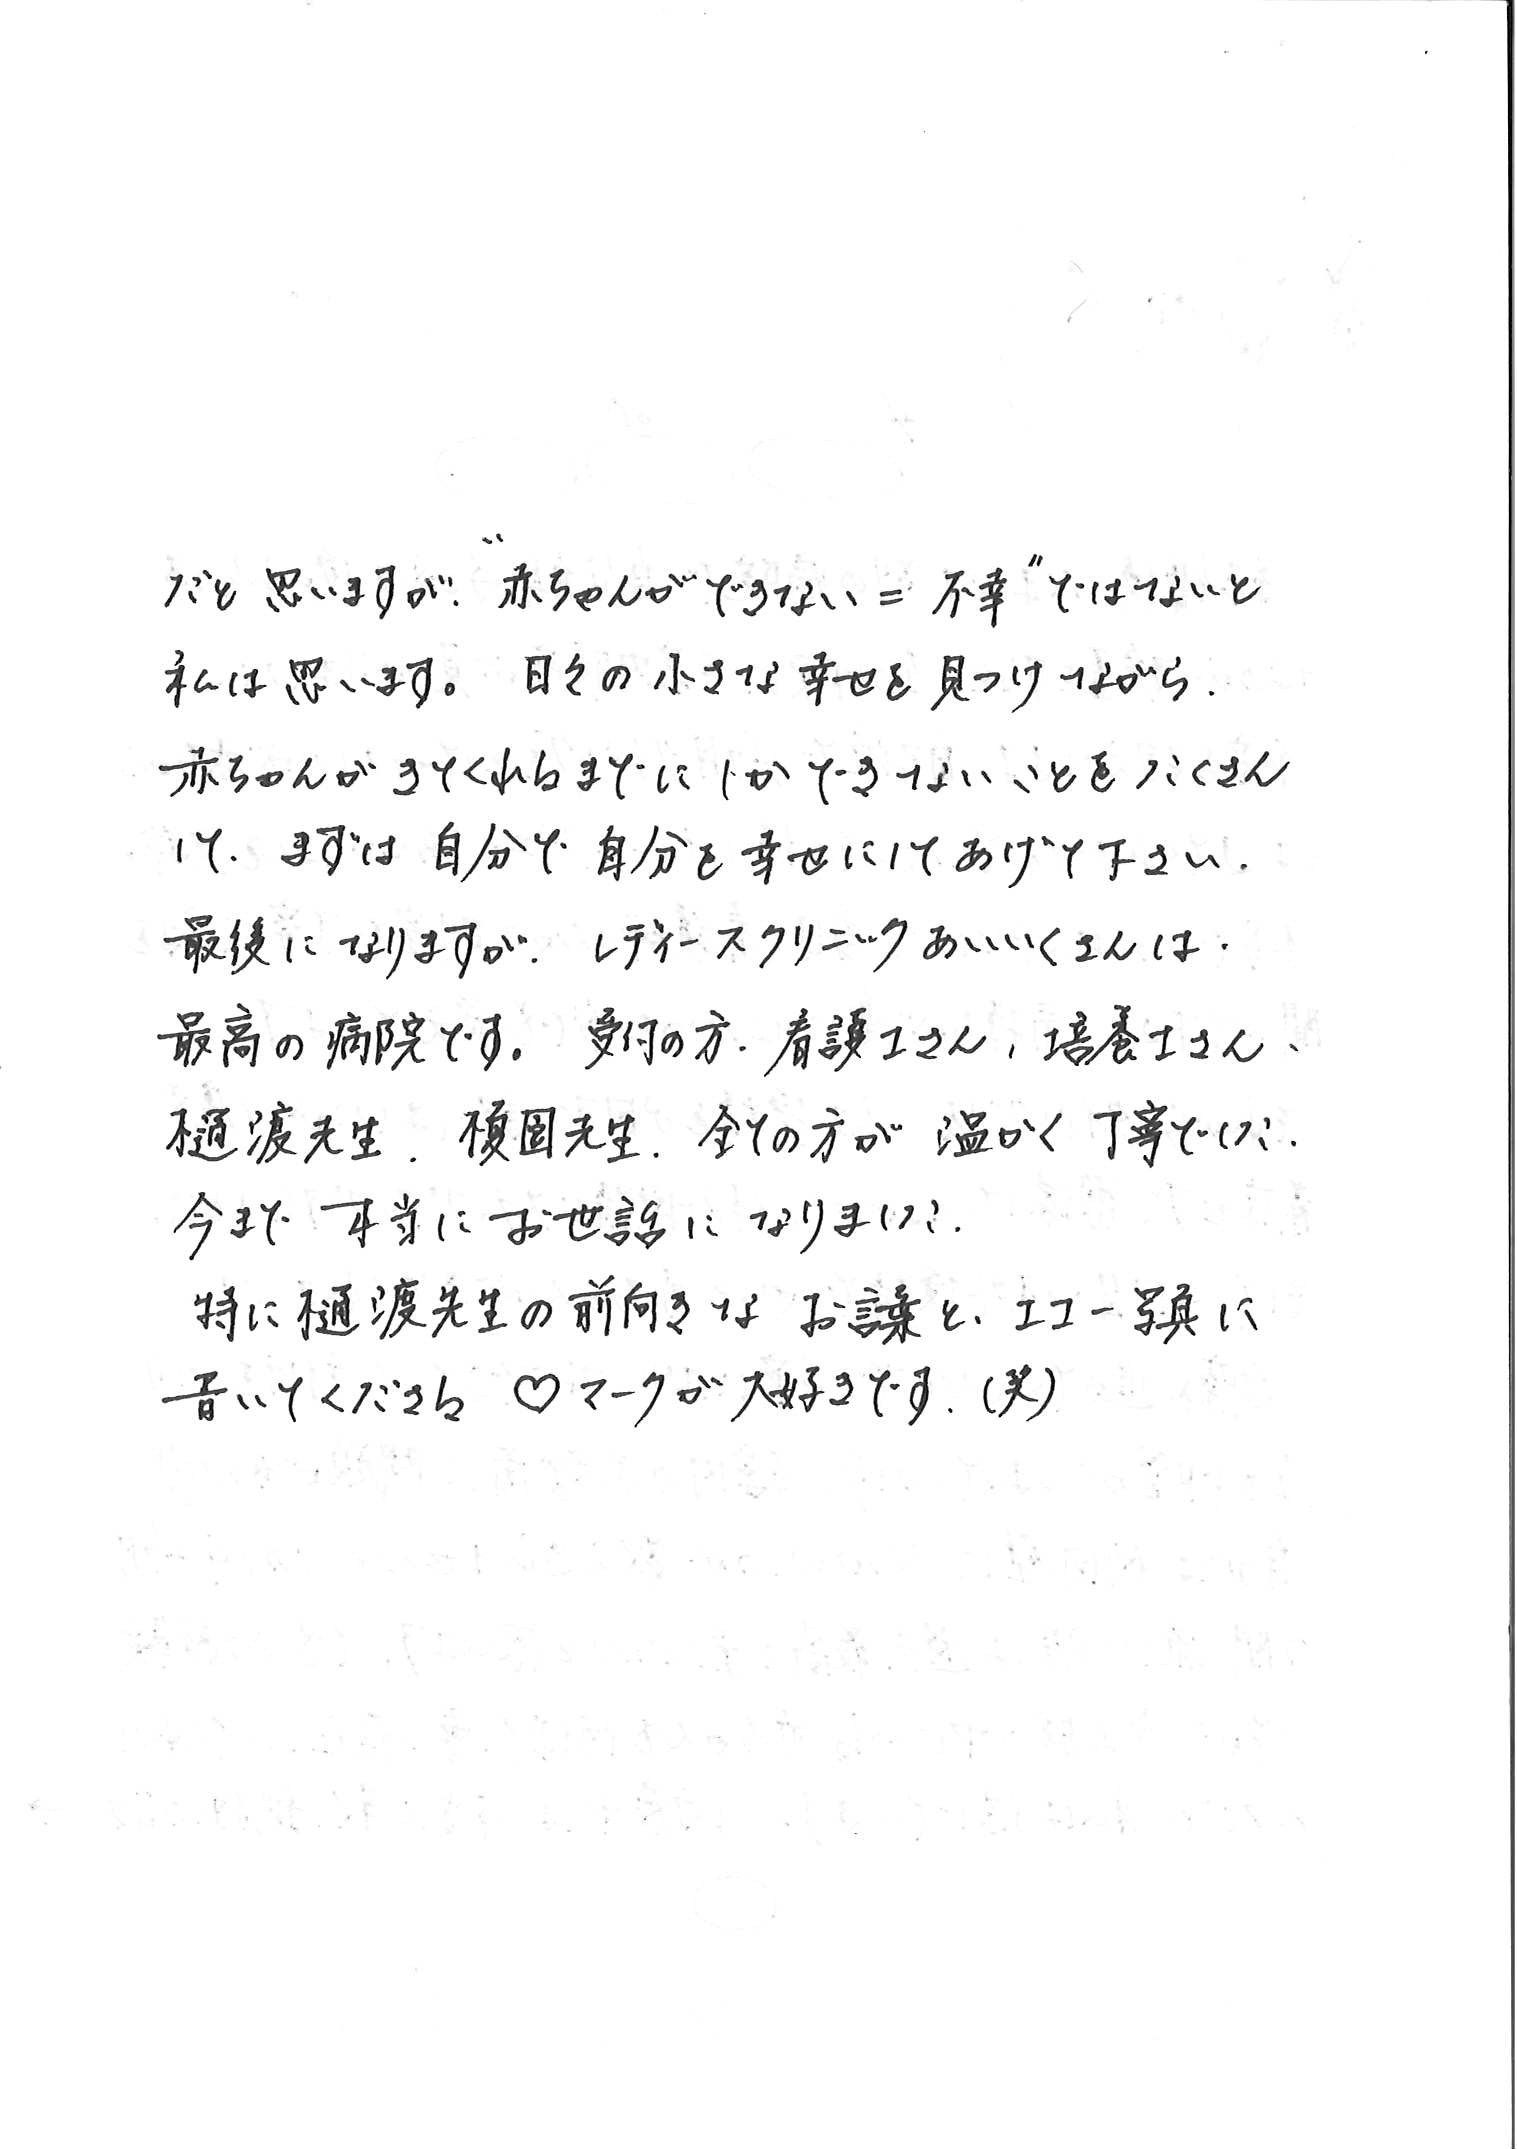 だと思いますが、“赤ちゃんができない＝不幸”ではないと
私は思います。日々の小さな幸せを見つけながら、
赤ちゃんがきてくれるまでにしかできないことをたくさん
して、まずは自分で自分を幸せにしてあげて下さい。
最後になりますが、レディースクリニックあいいくさんは、
最高の病院です。受付の方、看護士さん、培養士さん、
樋渡先生、榎園先生、全ての方が温かく丁寧でした。
今まで本当にお世話になりました。
特に樋渡先生の前向きなお言葉と、エコー写真に
書いてくださる♡マークが大好きです。（笑）